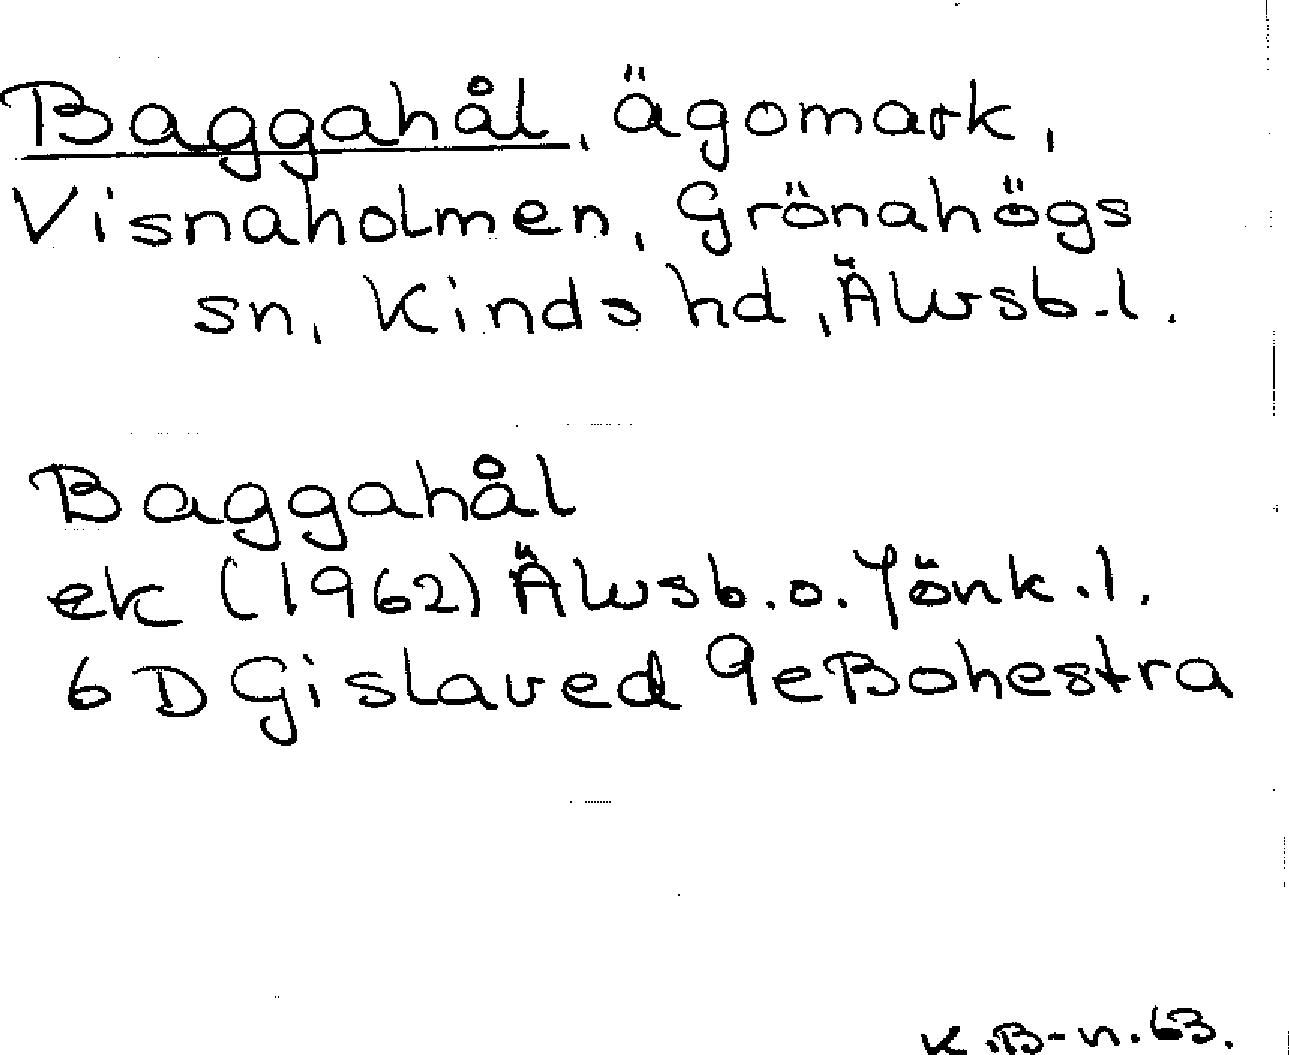 Baggahål, ägomark,
Visnaholmen, Grönahögs
sn, Kinds hd, Älvsb.l.
Baggahål
ek (1962) Älvsb.o.Jönk.l.
6D Gislaved 9e Bohestra
K.B-n.63.